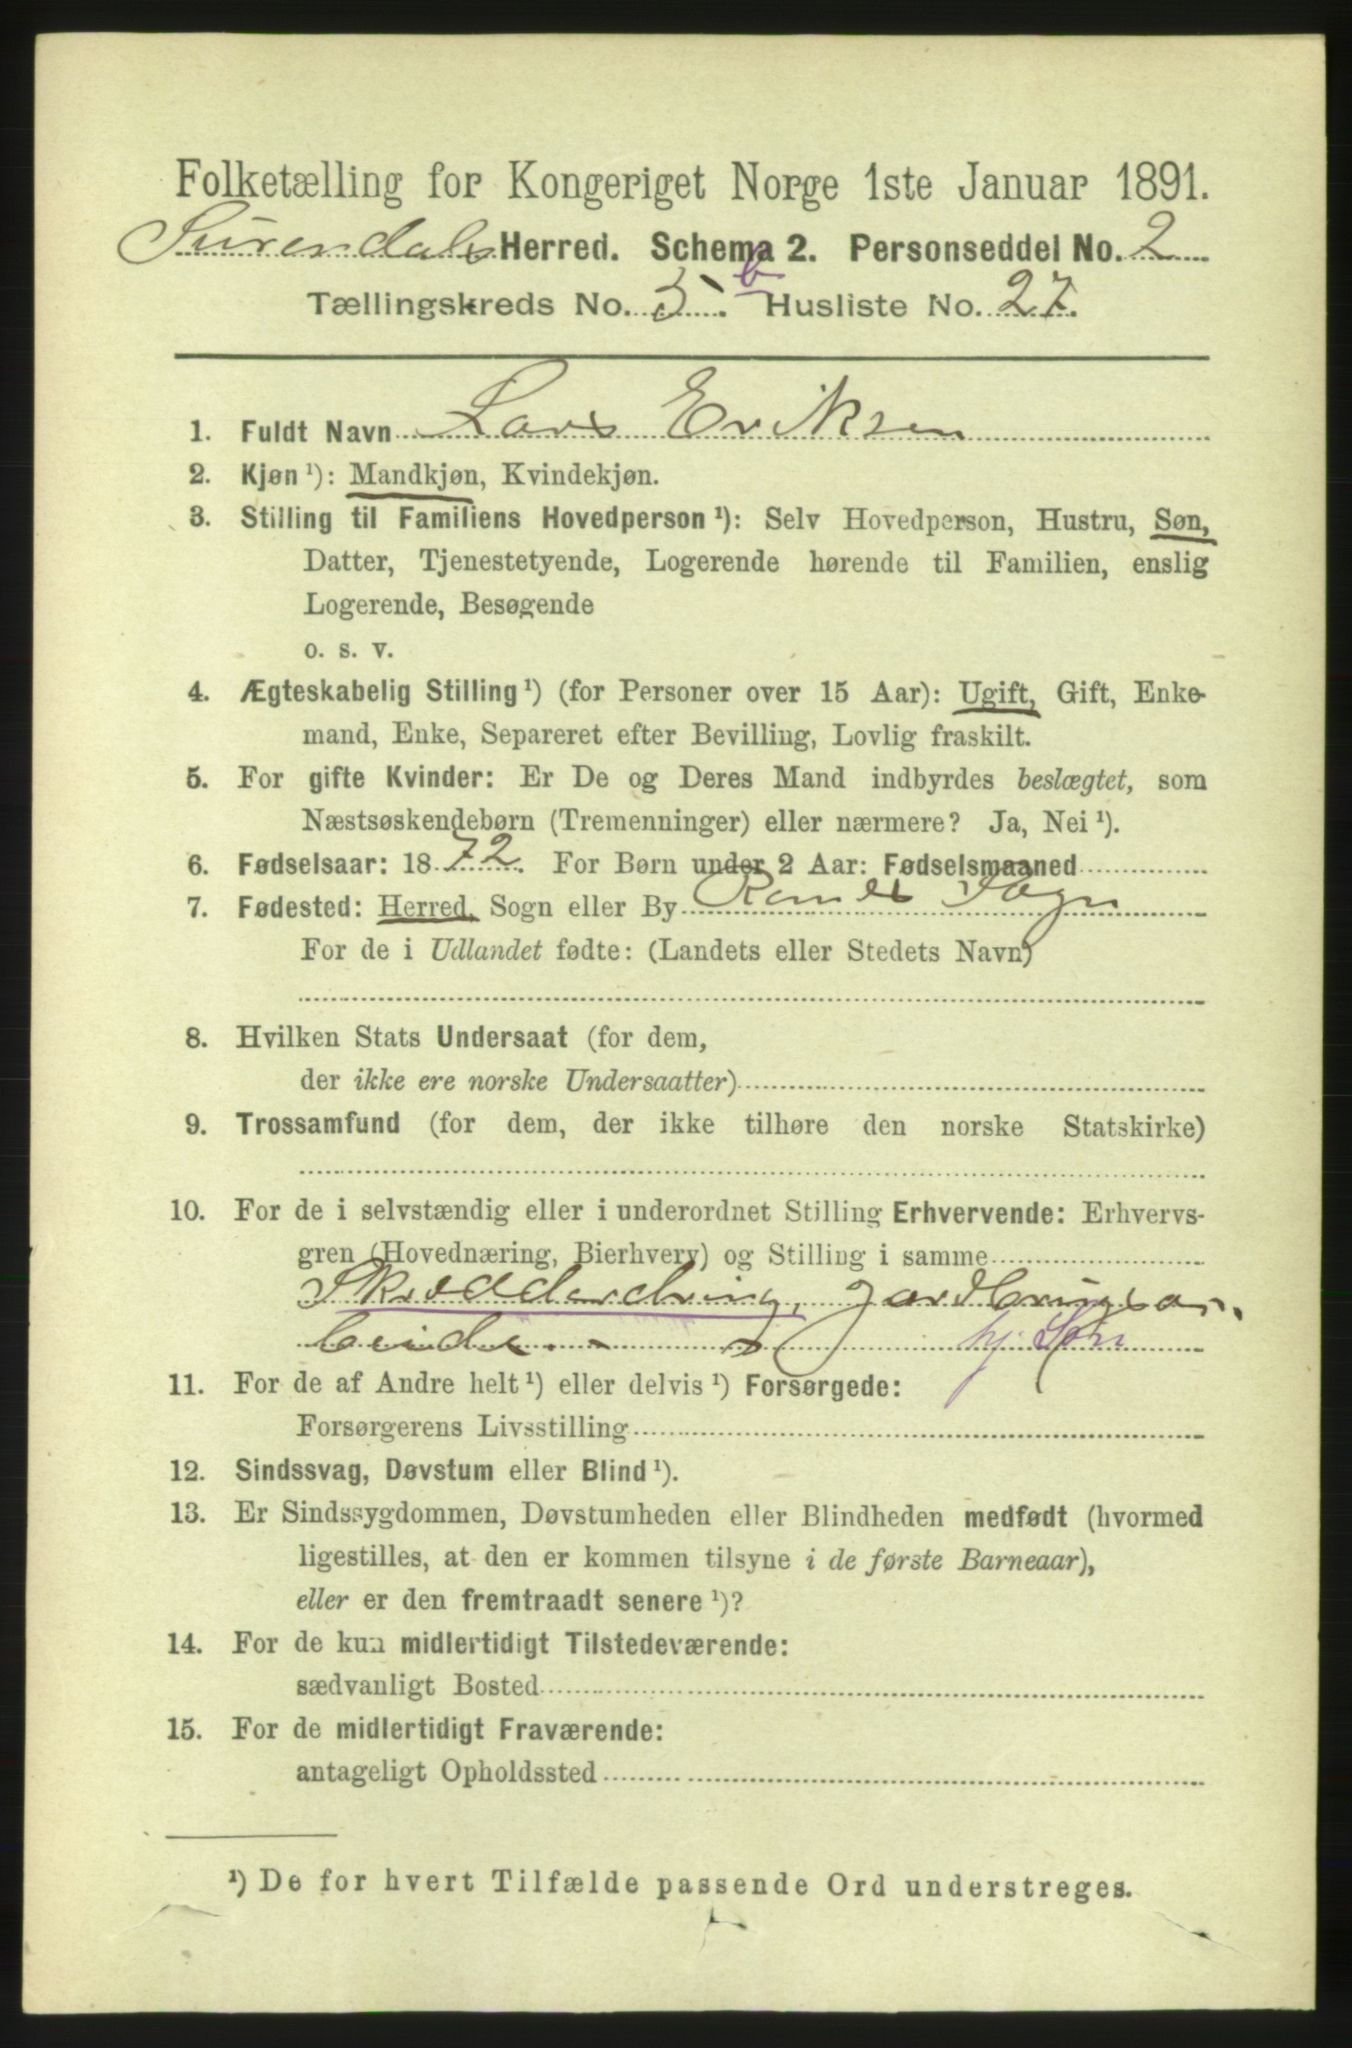 Folketælling for Kongeriget Norge 1ste Januar 1891.
Surendals Herred. Schema 2. Personseddel No. 2
Tællingskreds No. 5. b Husliste No. 27.
1. Fuldt Navn Lars Eriksen
2. Kjøn ¹): Mandkjøn, Kvindekjøn.
3. Stilling til Familiens Hovedperson ¹): Selv Hovedperson, Hustru, Søn,
Datter, Tjenestetyende, Logerende hørende til Familien, enslig
Logerende, Besøgende
o. s. v.
4. Ægteskabelig Stilling ¹) (for Personer over 15 Aar): Ugift, Gift, Enke-
mand, Enke, Separeret efter Bevilling, Lovlig fraskilt.
5. For gifte Kvinder: Er De og Deres Mand indbyrdes beslægtet, som
Næstsøskendebørn (Tremenninger) eller nærmere? Ja, Nei ¹).
6. Fødselsaar: 1872. For Børn under 2 Aar: Fødselsmaaned
7. Fødested: Herred, Sogn eller By Ranes Sogn
For de i Udlandet fødte: (Landets eller Stedets Navn)
8. Hvilken Stats Undersaat (for dem,
der ikke ere norske Undersaatter)
9. Trossamfund (for dem, der ikke tilhøre den norske Statskirke)
10. For de i selvstændig eller i underordnet Stilling Erhvervende: Erhvervs-
gren (Hovednæring, Bierhverv) og Stilling i samme
Skrædderdring, Jordbrugsar-
beide hj. Søn
11. For de af Andre helt ¹) eller delvis ¹) Forsørgede:
Forsørgerens Livsstilling
12. Sindssvag, Døvstum eller Blind ¹).
13. Er Sindssygdommen, Døvstumheden eller Blindheden medfødt (hvormed
ligestilles, at den er kommen tilsyne i de første Barneaar),
eller er den fremtraadt senere ¹)?
14. For de kun midlertidigt Tilstedeværende:
sædvanligt Bosted
15. For de midlertidigt Fraværende:
antageligt Opholdssted
¹) De for hvert Tilfælde passende Ord understreges.